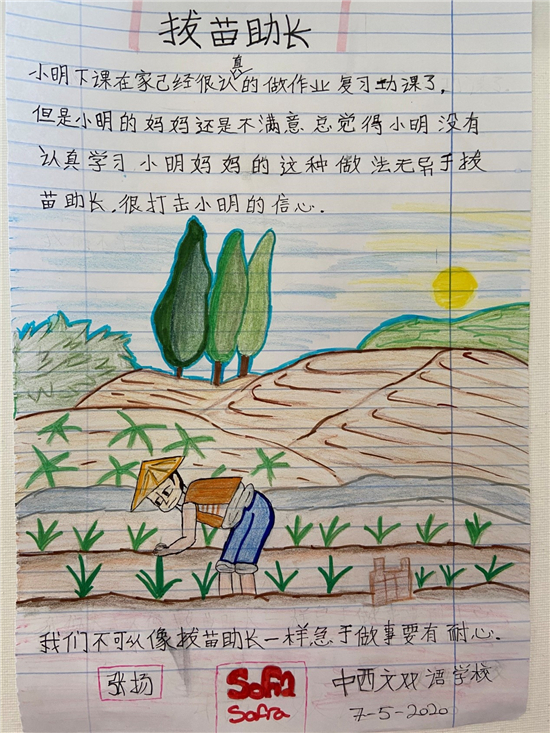 拔苗助长
小明下课在家已经很认真的做作业 复习功课了，
但是小明的妈妈还是不满意 总觉得小明没有
认真学习 小明妈妈的这种做法无异于拔
苗助长，很打击小明的信心．
我们不可以像拔苗助长一样急于做事要有耐心．
张扬
Sofia
Sofia
中西文双语学校
7-5-2020